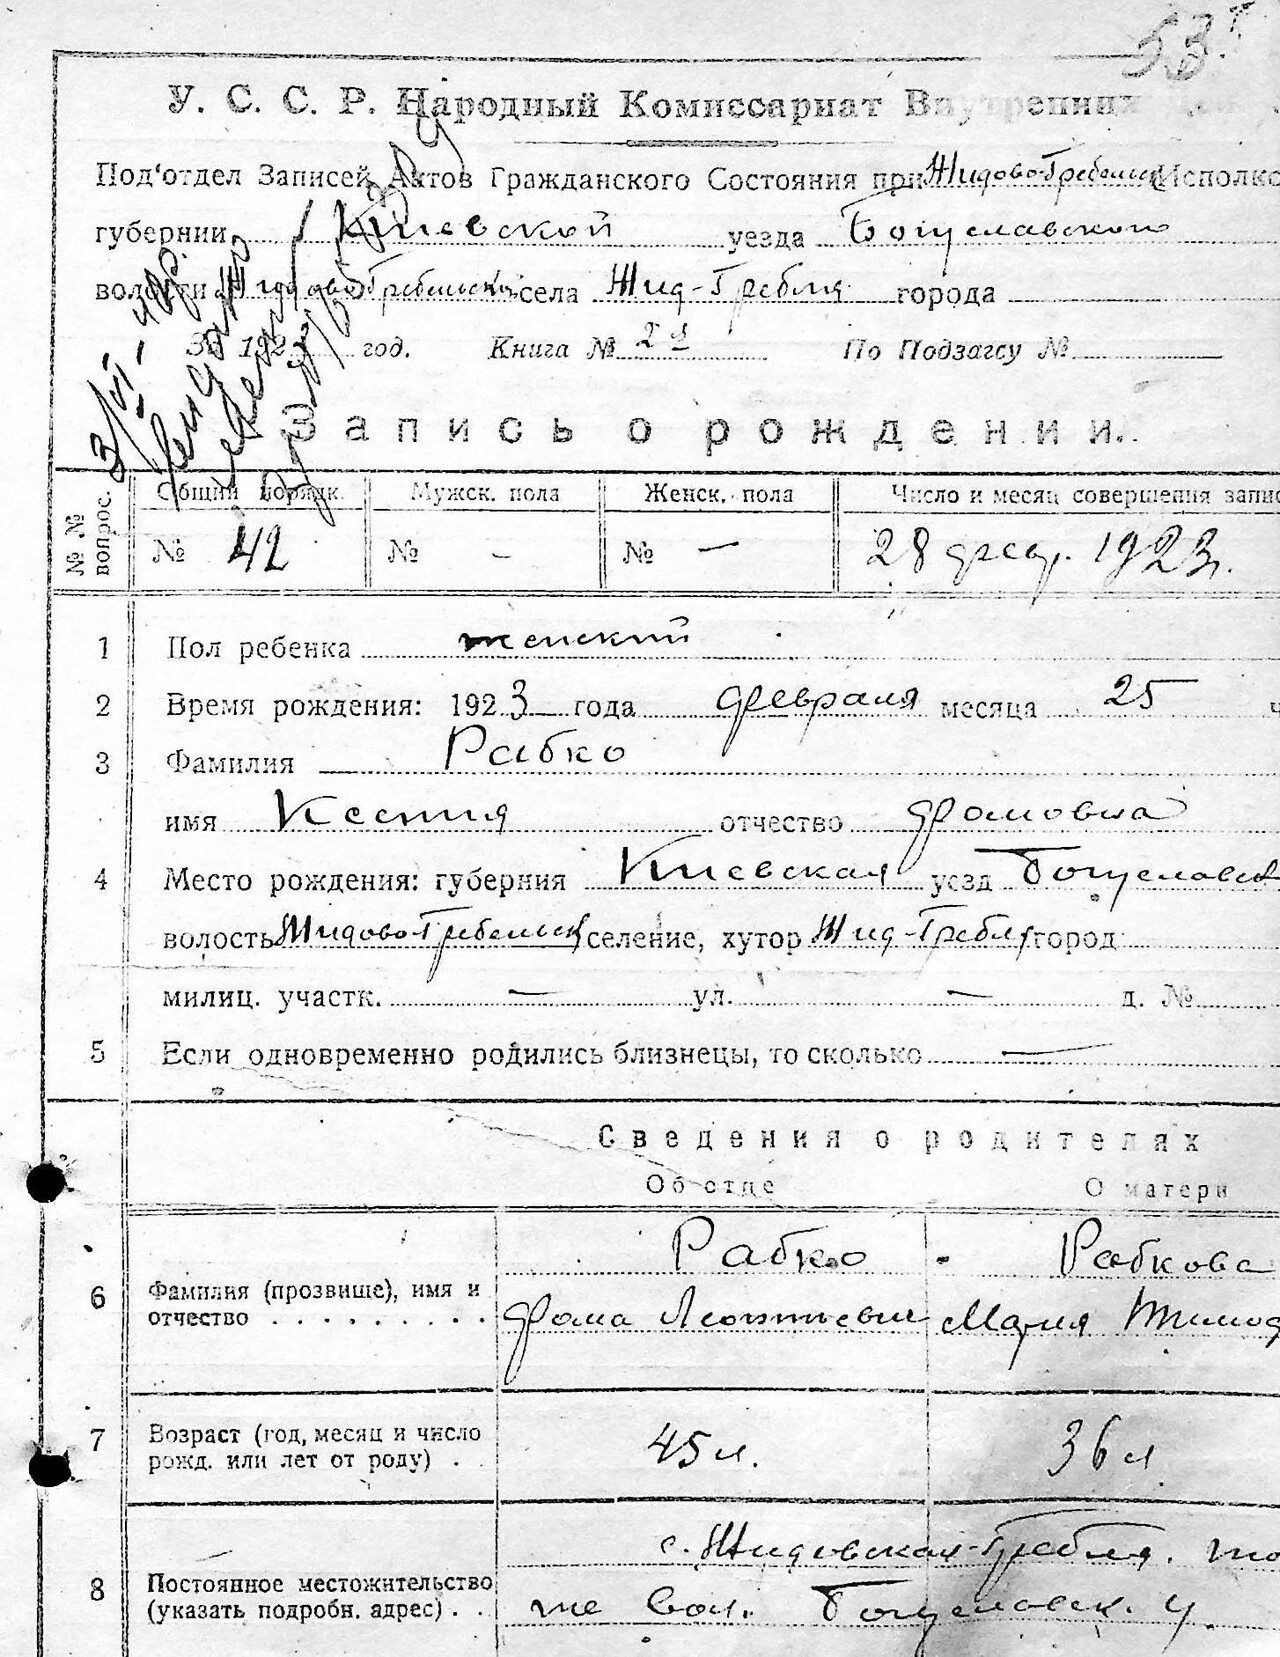 53
У. С. С. Р. Народный Комиссариат Внутренних
Под'отдел Записей Актов Гражданского Состояния при Жидово-Гребельск Исполко
губернии Киевской уезда Богуславского
волости Жидово-Гребельской села Жид-Гребля города
За 1923 год. Книга № По Подзагсу №
Запись о рождении.
№ № вопрос. Общий порядк. Мужск. пола Женск. пола Число и месяц совершения запис
№ 42 № — № — 28 февр. 1923 г.
1 Пол ребенка женский
2 Время рождения: 1923 года февраля месяца 25 ч
3 Фамилия Рабко
имя Ксения отчество Фомовна
4 Место рождения: губерния Киевская уезд Богуславск
волость Жидово-Гребельск селение, хутор Жид-Гребля город
милиц. участк. — ул. — д. №
5 Если одновременно родились близнецы, то сколько —
Сведения о родителях
Об отце О матери
Рабко Рабкова
6 Фамилия (прозвище), имя и
отчество . . . . . . . . . Фома Леонтьевич Мария Тимоф
7 Возраст (год, месяц и число
рожд. или лет от роду) . . 45 л. 36 л
с. Жидовская-Гребля. то
8 Постоянное местожительство
(указать подробн. адрес) . . же вол. Богуславск. у.